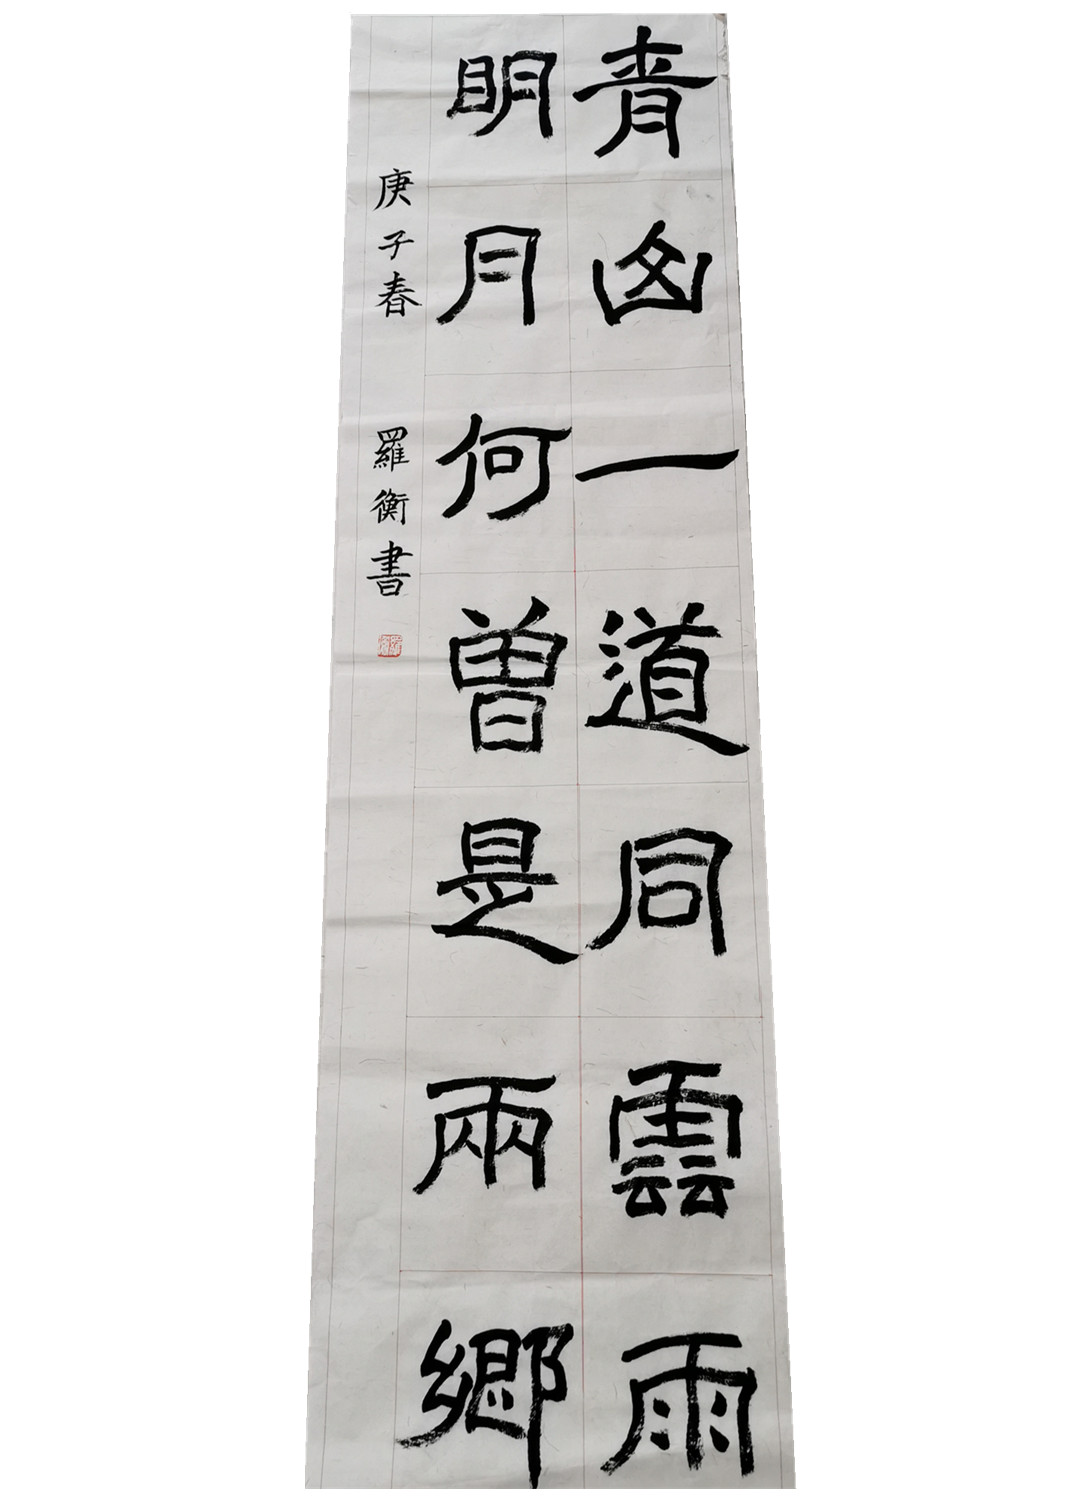 青山一道同雲雨
明月何曾是兩鄉
庚子春 羅衡書